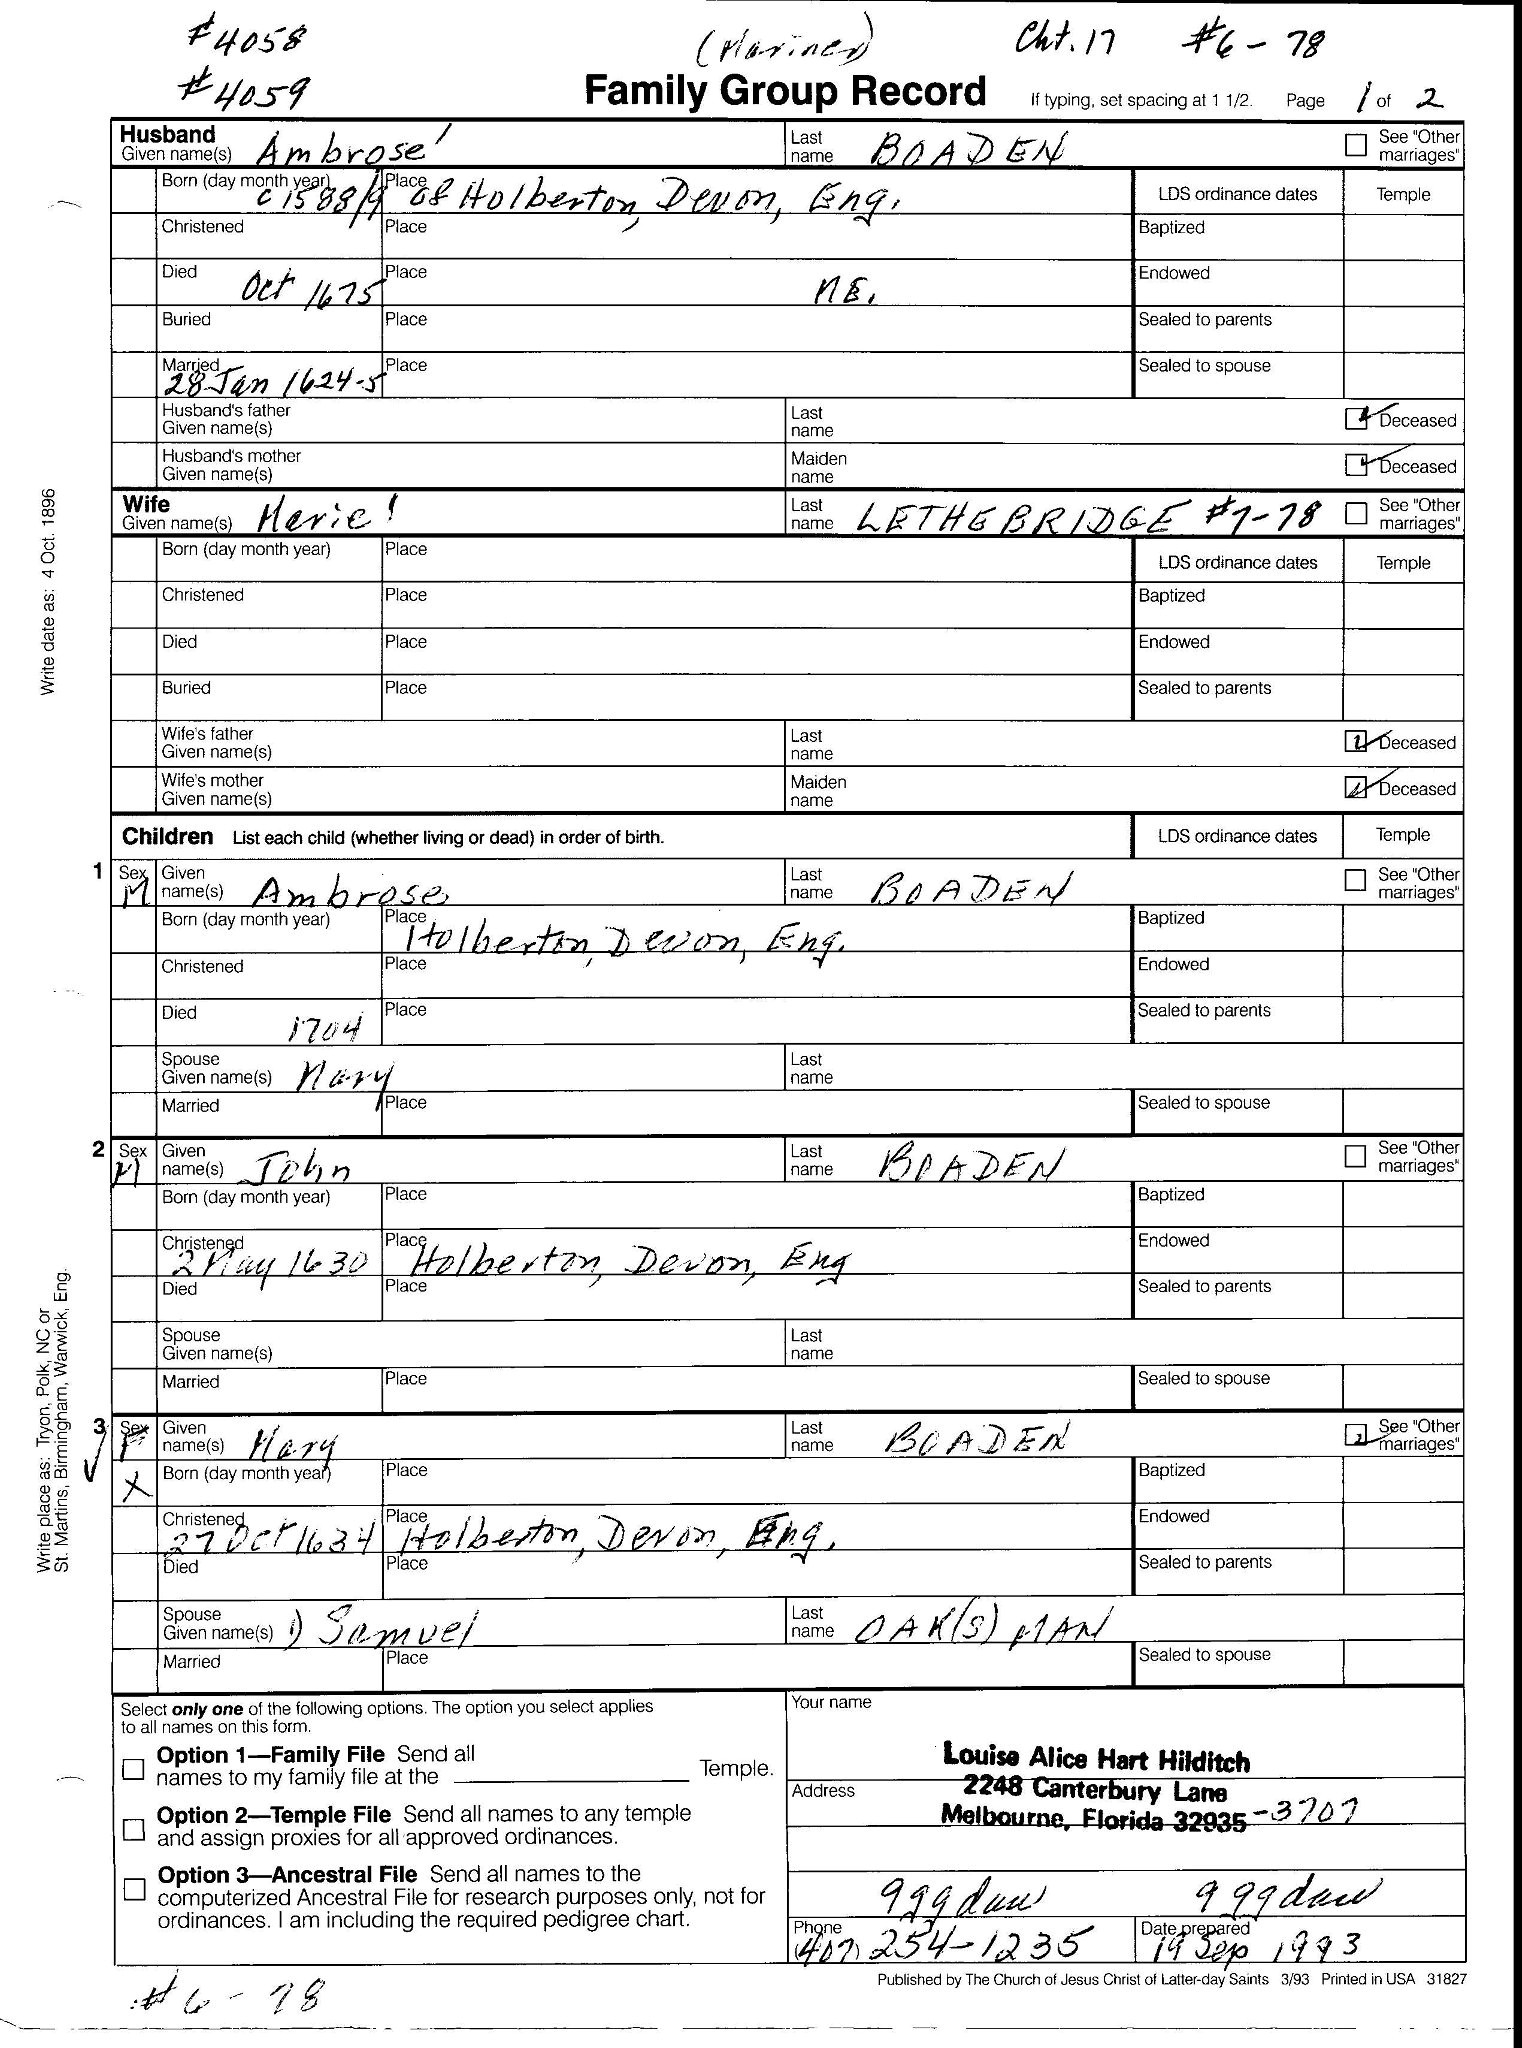 #4058 (Mariner) Cht. 17 #6-78
#4059
Family Group Record If typing, set spacing at 1 1/2. Page 1 of 2
Husband
Given name(s) Ambrose! Last name BOADEN See "Other marriages"
Born (day month year) c 1588/9 Place of Holberton, Devon, Eng. LDS ordinance dates Temple
Christened Place Baptized
Died Oct 1675 Place NE. Endowed
Buried Place Sealed to parents
Married 28 Jan 1624-5 Place Sealed to spouse
Husband's father Given name(s) Last name Deceased
Husband's mother Given name(s) Maiden name Deceased
Wife
Given name(s) Marie! Last name LETHEBRIDGE #7-78 See "Other marriages"
Born (day month year) Place LDS ordinance dates Temple
Christened Place Baptized
Died Place Endowed
Buried Place Sealed to parents
Wife's father Given name(s) Last name Deceased
Wife's mother Given name(s) Maiden name Deceased
Children List each child (whether living or dead) in order of birth. LDS ordinance dates Temple
1 Sex M Given name(s) Ambrose Last name BOADEN See "Other marriages"
Born (day month year) Place Holberton, Devon, Eng. Baptized
Christened Place Endowed
Died 1704 Place Sealed to parents
Spouse Given name(s) Mary Last name
Married Place Sealed to spouse
2 Sex M Given name(s) John Last name BOADEN See "Other marriages"
Born (day month year) Place Baptized
Christened 2 May 1630 Place Holberton, Devon, Eng Endowed
Died Place Sealed to parents
Spouse Given name(s) Last name
Married Place Sealed to spouse
3 Sex F Given name(s) Mary Last name BOADEN See "Other marriages"
X Born (day month year) Place Baptized
Christened 27 Oct 1634 Place Holberton, Devon, Eng. Endowed
Died Place Sealed to parents
Spouse Given name(s) 1) Samuel Last name OAK(S)MAN
Married Place Sealed to spouse
Write date as: 4 Oct. 1896
Write place as: Tryon, Polk, NC or
St. Martins, Birmingham, Warwick, Eng.
Select only one of the following options. The option you select applies
to all names on this form.
Option 1—Family File Send all
names to my family file at the Temple.
Option 2—Temple File Send all names to any temple
and assign proxies for all approved ordinances.
Option 3—Ancestral File Send all names to the
computerized Ancestral File for research purposes only, not for
ordinances. I am including the required pedigree chart.
Your name
Louise Alice Hart Hilditch
Address 2248 Canterbury Lane
Melbourne, Florida 32935-3707
999 daw 999 daw
Phone (407) 254-1235 Date prepared 19 Sep 1993
Published by The Church of Jesus Christ of Latter-day Saints 3/93 Printed in USA 31827
#6-78